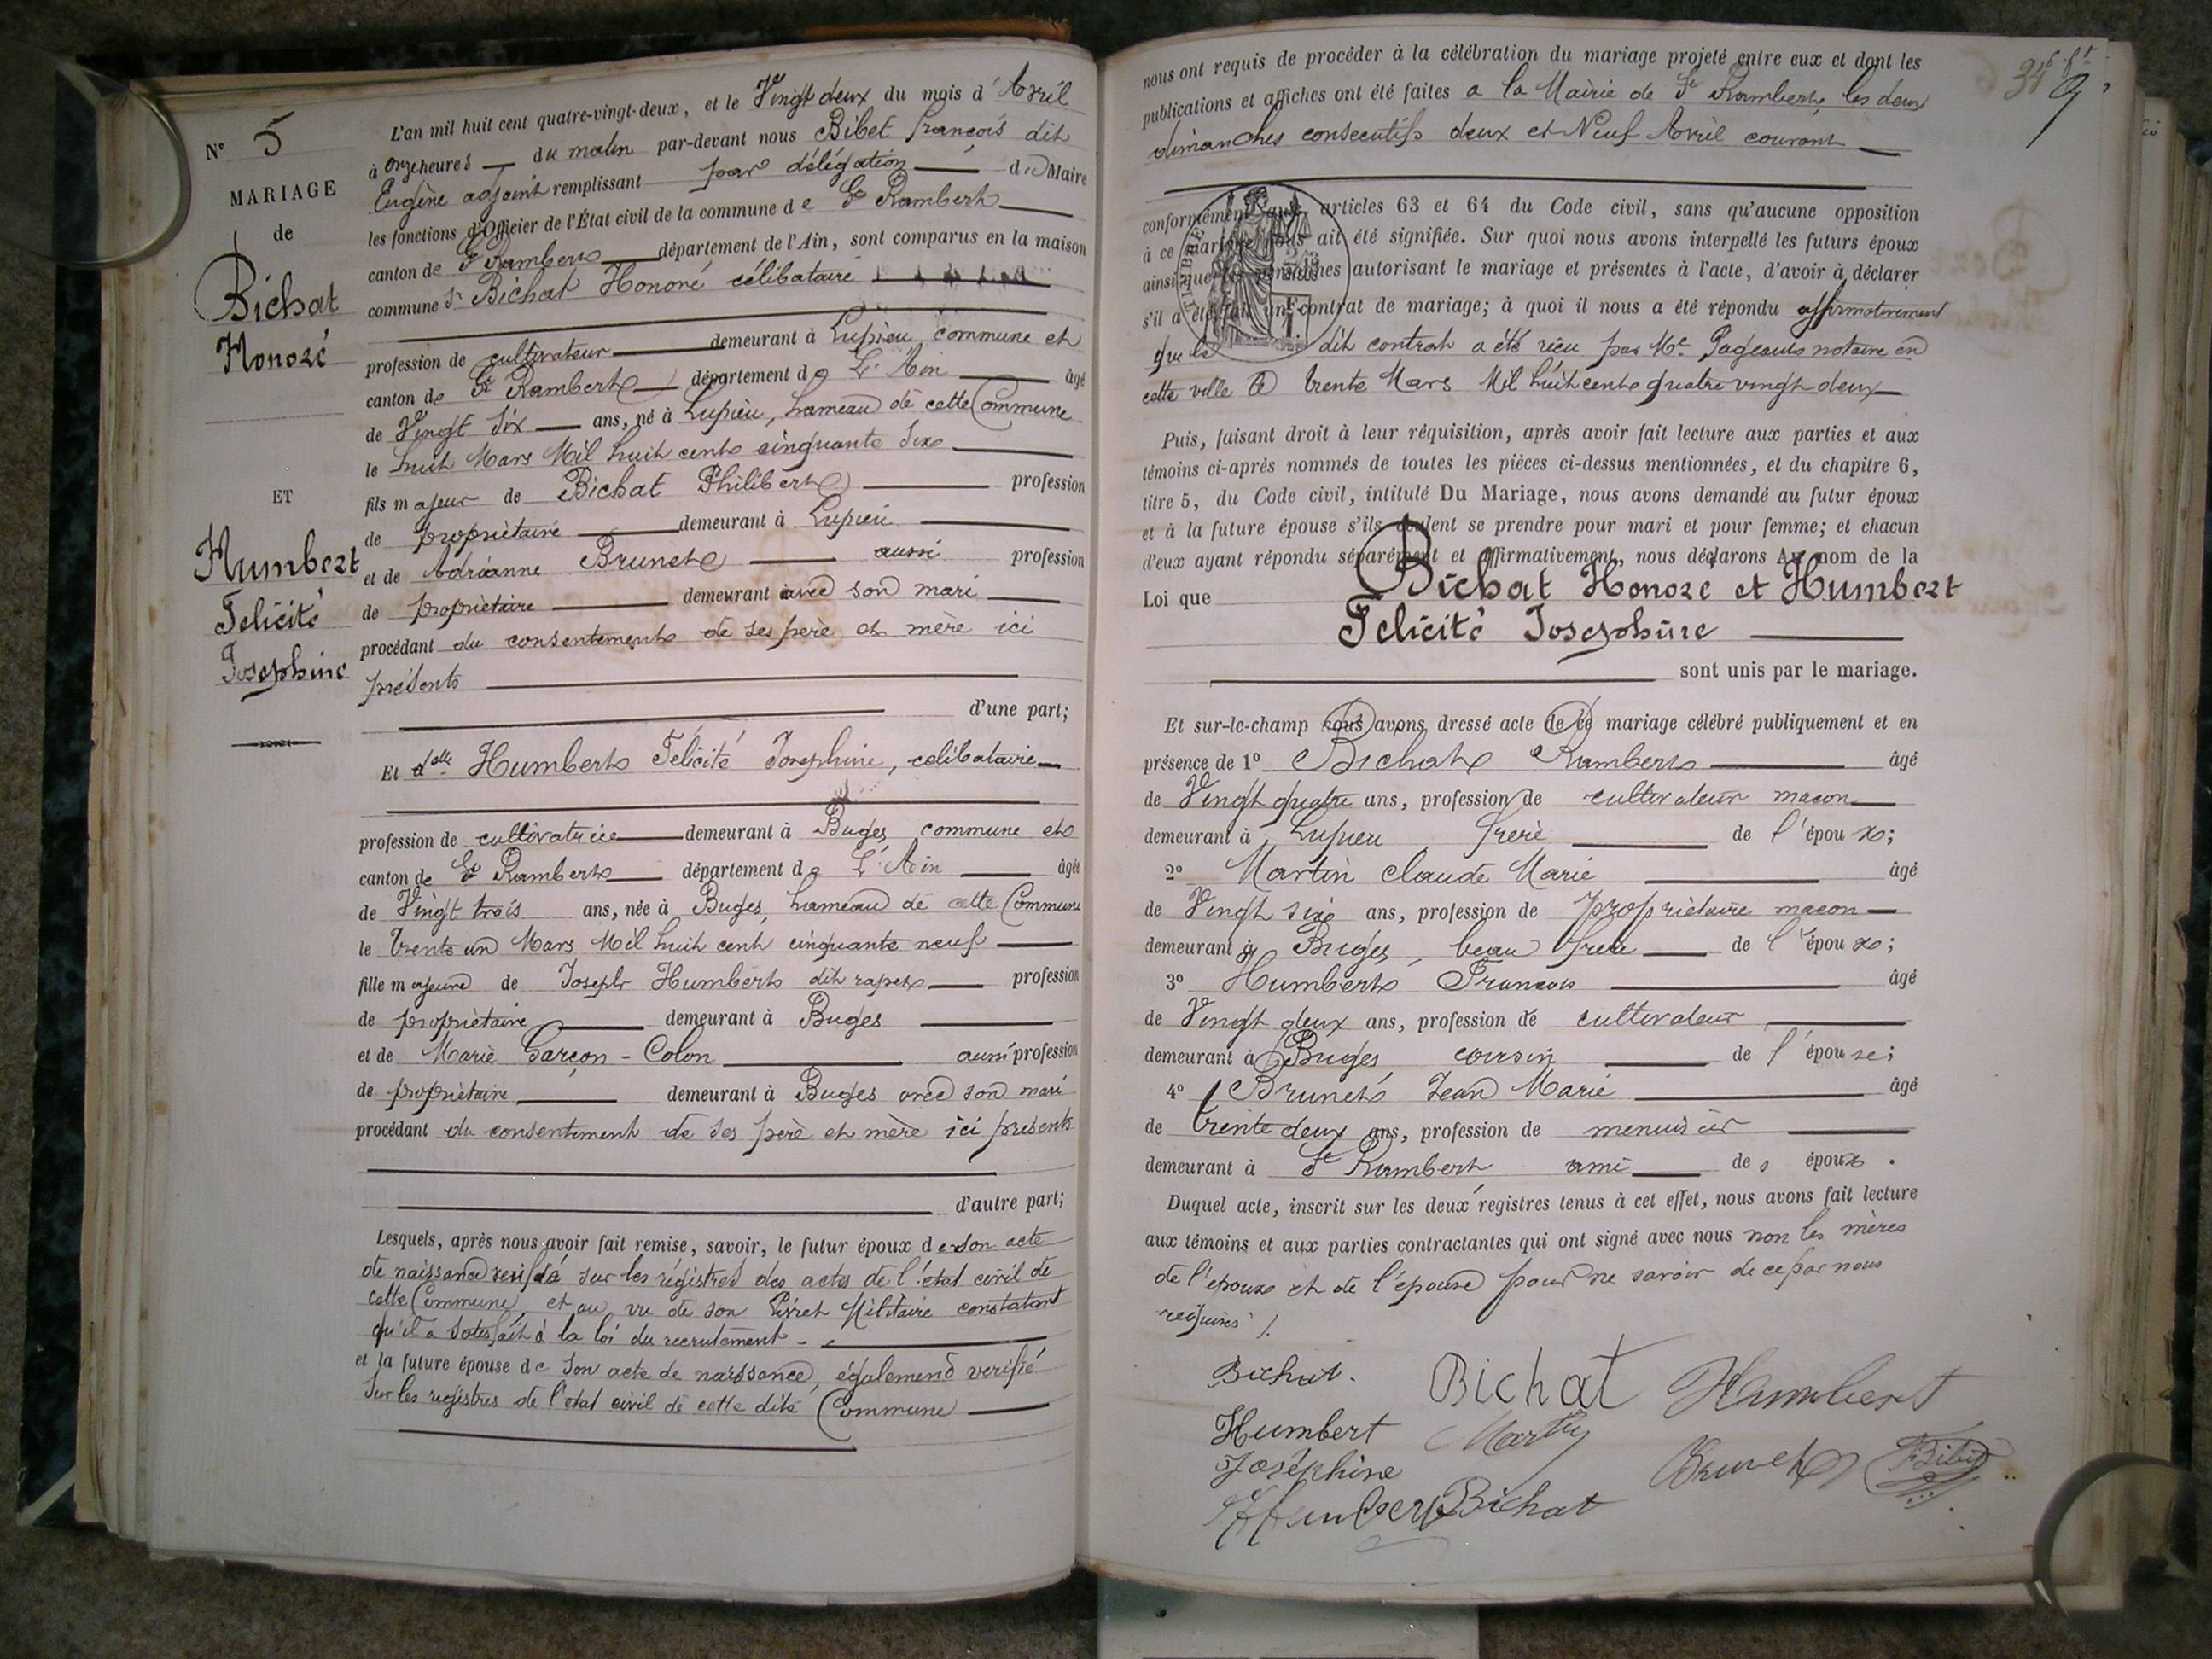 N° 5
MARIAGE
de
Bichat
Honoré
ET
Humbert
Felicité
Josephine
L'an mil huit cent quatre-vingt-deux, et le Vingt deux du mois d'Avril
à onze heures du matin par-devant nous Bibet françois dit
Eugène adjoint remplissant par délégation du Maire
les fonctions d'Officier de l'État civil de la commune de St Rambert
canton de St Rambert département de l'Ain, sont comparus en la maison
commune Sr Bichat Honoré célibataire
profession de cultivateur demeurant à Lupieu commune et
canton de St Rambert département de L'Ain âgé
de Vingt six ans, né à Lupieu, hameau de cette Commune
le huit Mars Mil huit cent cinquante six
fils majeur de Bichat Philibert profession
de propriètaire demeurant à Lupieu
et de Adrianne Brunet aussi profession
de propriètaire demeurant avec son mari
procédant du consentement de ses père et mère ici
présents
d'une part;
Et delle Humbert Félicité Josephine, celibataire
profession de cultivatrice demeurant à Buges commune et
canton de St Rambert département de L'Ain âgée
de Vingt trois ans, née à Buges, hameau de cette Commune
le trente un Mars Mil huit cent cinquante neuf
fille majeure de Joseph Humbert dit rapet profession
de propriètaire demeurant à Buges
et de Marie Garçon - Colon aussi profession
de propriètaire demeurant à Buges avec son mari
procédant du consentement de ses père et mère ici presents
d'autre part;
Lesquels, après nous avoir fait remise, savoir, le futur époux de son acte
de naissance verifié sur les régistres des actes de l'état civil de
cette Commune, et au vu de son Livret Militaire constatant
qu'il a satisfait à la loi du recrutement
et la future épouse de son acte de naissance, également verifié
sur les registres de l'etat civil de cette dite Commune
9
nous ont requis de procéder à la célébration du mariage projeté entre eux et dont les
publications et affiches ont été faites a la Mairie de St Rambert les deux
dimanches consecutifs deux et Neuf Avril courant
conformément aux articles 63 et 64 du Code civil, sans qu'aucune opposition
à ce mariage nous ait été signifiée. Sur quoi nous avons interpellé les futurs époux
ainsi que les personnes autorisant le mariage et présentes à l'acte, d'avoir à déclarer
s'il a été fait un contrat de mariage; à quoi il nous a été répondu affirmativement
que le dit contrat a été reçu par Me Pageaut notaire en
cette ville le trente Mars Mil huit cent quatre vingt deux
Puis, faisant droit à leur réquisition, après avoir fait lecture aux parties et aux
témoins ci-après nommés de toutes les pièces ci-dessus mentionnées, et du chapitre 6,
titre 5, du Code civil, intitulé Du Mariage, nous avons demandé au futur époux
et à la future épouse s'ils veulent se prendre pour mari et pour femme; et chacun
d'eux ayant répondu séparément et affirmativement, nous déclarons Au nom de la
Loi que Bichat Honoré et Humbert
Felicité Josephine
sont unis par le mariage.
Et sur-le-champ nous avons dressé acte de ce mariage célébré publiquement et en
présence de 1° Bichat Rambert âgé
de Vingt quatre ans, profession de cultivateur macon
demeurant à Lupieu frere de l'époux;
2° Martin Claude Marie âgé
de Vingt six ans, profession de propriètaire macon
demeurant à Buges, beau frere de l'époux;
3° Humbert Francois âgé
de Vingt deux ans, profession de cultivateur
demeurant à Buges cousin de l'épouse;
4° Brunet Jean Marie âgé
de trente deux ans, profession de menuisier
demeurant à St Rambert ami des époux.
Duquel acte, inscrit sur les deux registres tenus à cet effet, nous avons fait lecture
aux témoins et aux parties contractantes qui ont signé avec nous non les mères
de l'epoux et de l'épouse pour ne savoir de ce par nous
requises
Bichat. Bichat Humbert
Humbert Martin
Joséphine Brunet F Bibet
Humbert Bichat